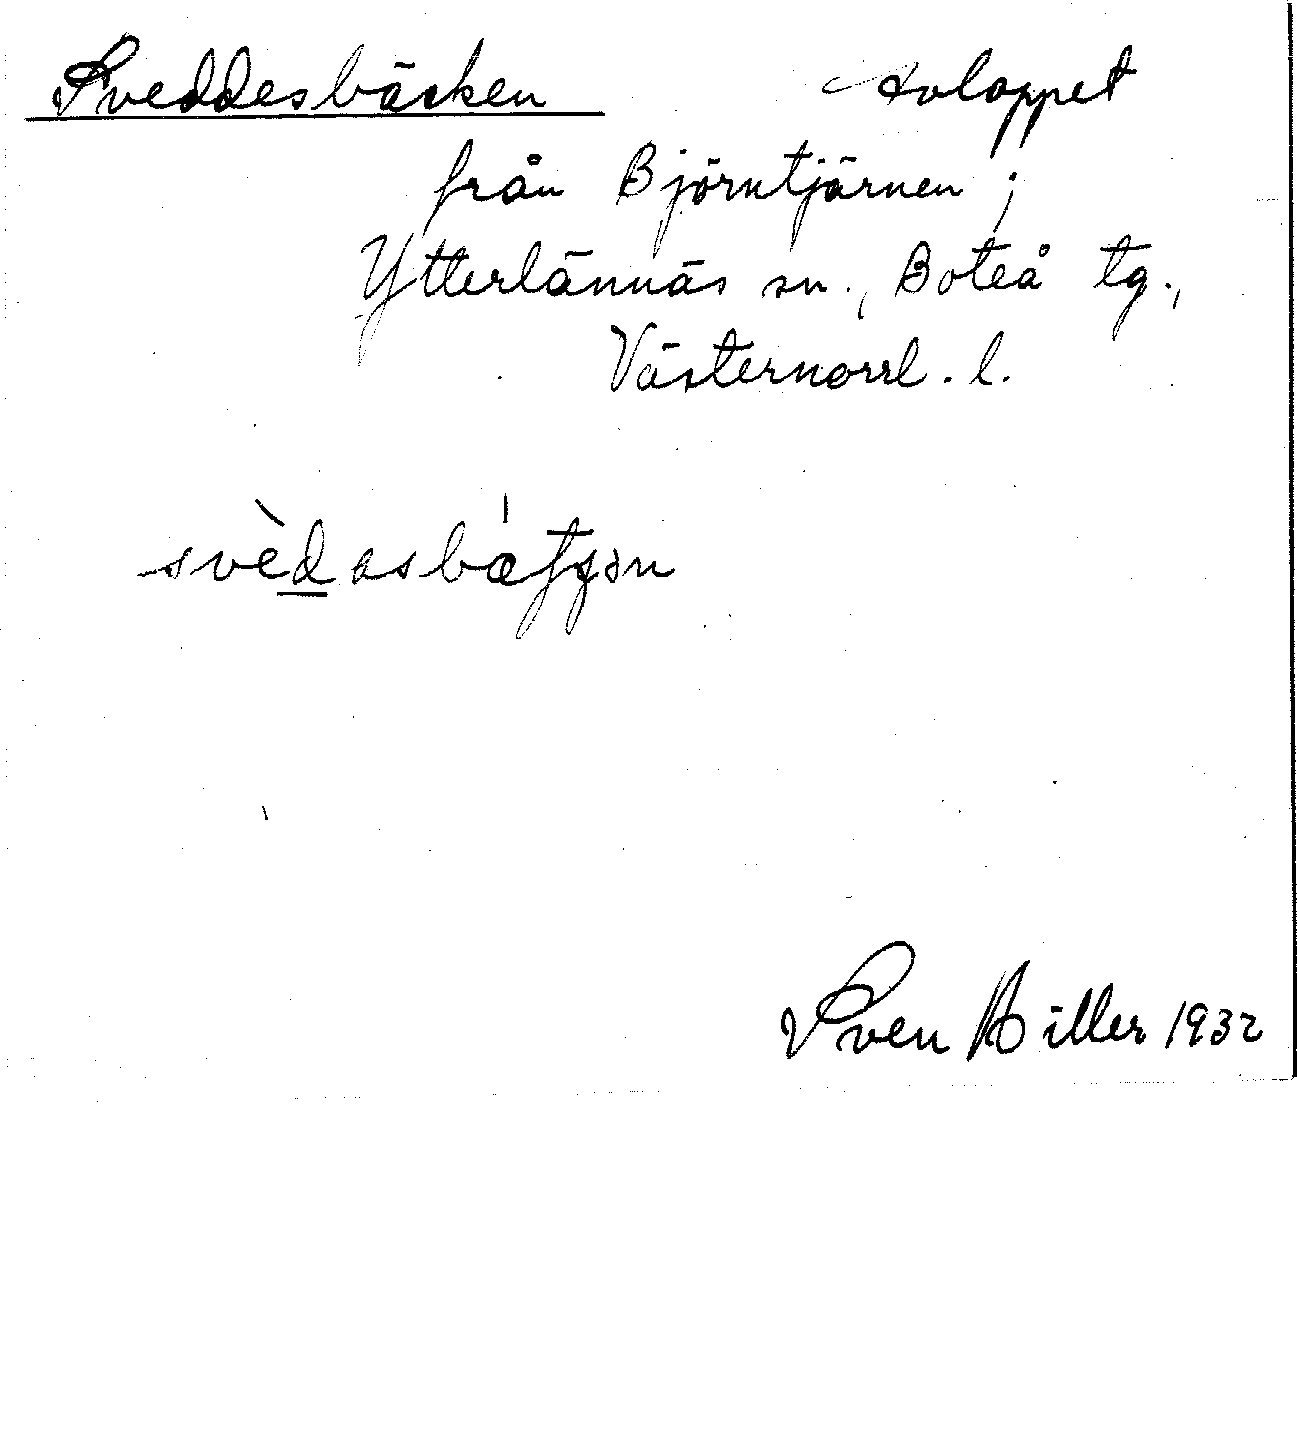 Sveddesbäcken avloppet
från Björntjärnen;
Ytterlännäs sn., Boteå tg.,
Västernorrl. l.
Sven Hiller 1932